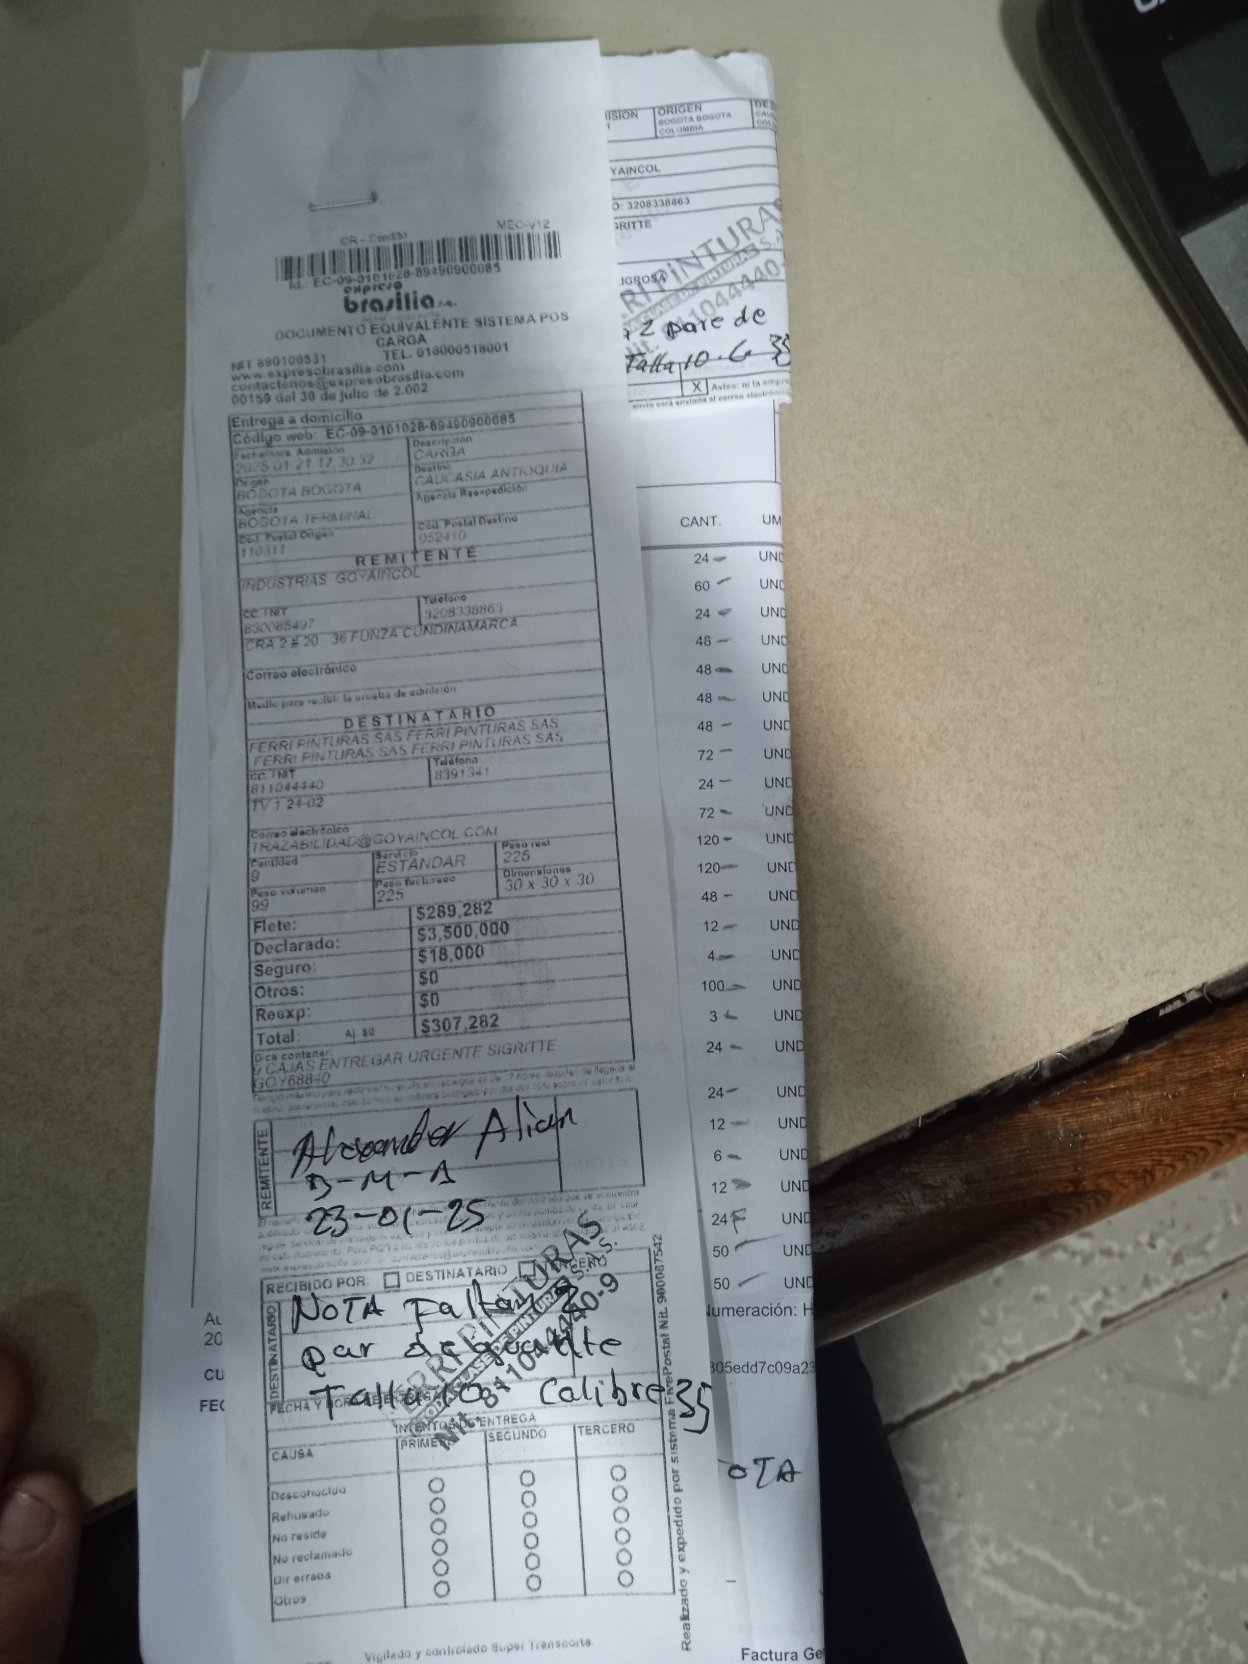 CR - Credito MEC-v12
Id.: EC-09-0101028-89490900085
expreso
brasilia s.a.
DOCUMENTO EQUIVALENTE SISTEMA POS
CARGA
NIT 890100531 TEL. 018000518001
www.expresobrasilia.com
contactenos@expresobrasilia.com
00159 del 30 de julio de 2.002
Entrega a domicilio
Código web: EC-09-0101028-89490900085
Fecha/hora Admisión Descripción
2025-01-21 17:30:32 CARGA
Origen Destino
BOGOTA BOGOTA CAUCASIA ANTIOQUIA
Agencia Agencia Reexpedición
BOGOTA TERMINAL
Cod. Postal Origen Cod. Postal Destino
110311 052410
REMITENTE
INDUSTRIAS GOYAINCOL
CC. / NIT Teléfono
830085497 3208338863
CRA 2 # 20 36 FUNZA CUNDINAMARCA
Correo electrónico
Medio para recibir la prueba de admisión
DESTINATARIO
FERRI PINTURAS SAS FERRI PINTURAS SAS
FERRI PINTURAS SAS FERRI PINTURAS SAS
CC. / NIT Teléfono
811044440 8391341
TV 1 24-02
Correo electrónico
TRAZABILIDAD@GOYAINCOL.COM
Cantidad Servicio Peso real
9 ESTANDAR 225
Peso volumen Peso facturado Dimensiones
99 225 30 x 30 x 30
Flete: $289,282
Declarado: $3,500,000
Seguro: $18,000
Otros: $0
Reexp: $0
Total: Aj. $0 $307,282
Dice contener:
9 CAJAS ENTREGAR URGENTE SIGRITTE
GOY68840
REMITENTE
Alexander Alian
D-M-A
23-01-25
RECIBIDO POR: DESTINATARIO TERCERO
DESTINATARIO
NOTA Faltan 2
par de guante
Talla 10 Calibre 35
FERRI PINTURAS
Nit. 811044440-9
INTENTOS DE ENTREGA
CAUSA PRIMER SEGUNDO TERCERO
Desconocido
Rehusado
No reside
No reclamado
Dir errada
Otros
Vigilado y controlado Super Transporte
Realizado y expedido por sistema FivePostal Nit. 900087542
ISION ORIGEN DE
1 BOGOTA BOGOTA
COLOMBIA
YAINCOL
O: 3208338863
GRITTE
LIGROSA
RI PINTURAS
2 pare de
Talla 10. C 35
X Aviso: ni la empre
envio será enviada al correo electrónico
CANT. UM
24 UND
60 UND
24 UND
48 UND
48 UND
48 UND
48 UND
72 UND
24 UND
72 UND
120 UND
120 UND
48 UND
12 UND
4 UND
100 UND
3 UND
24 UND
24 UND
12 UND
6 UND
12 UND
24 UND
50 UND
50 UND
Numeración: H
305edd7c09a23
OTA
Au
20
CU
FEC
Factura Ge